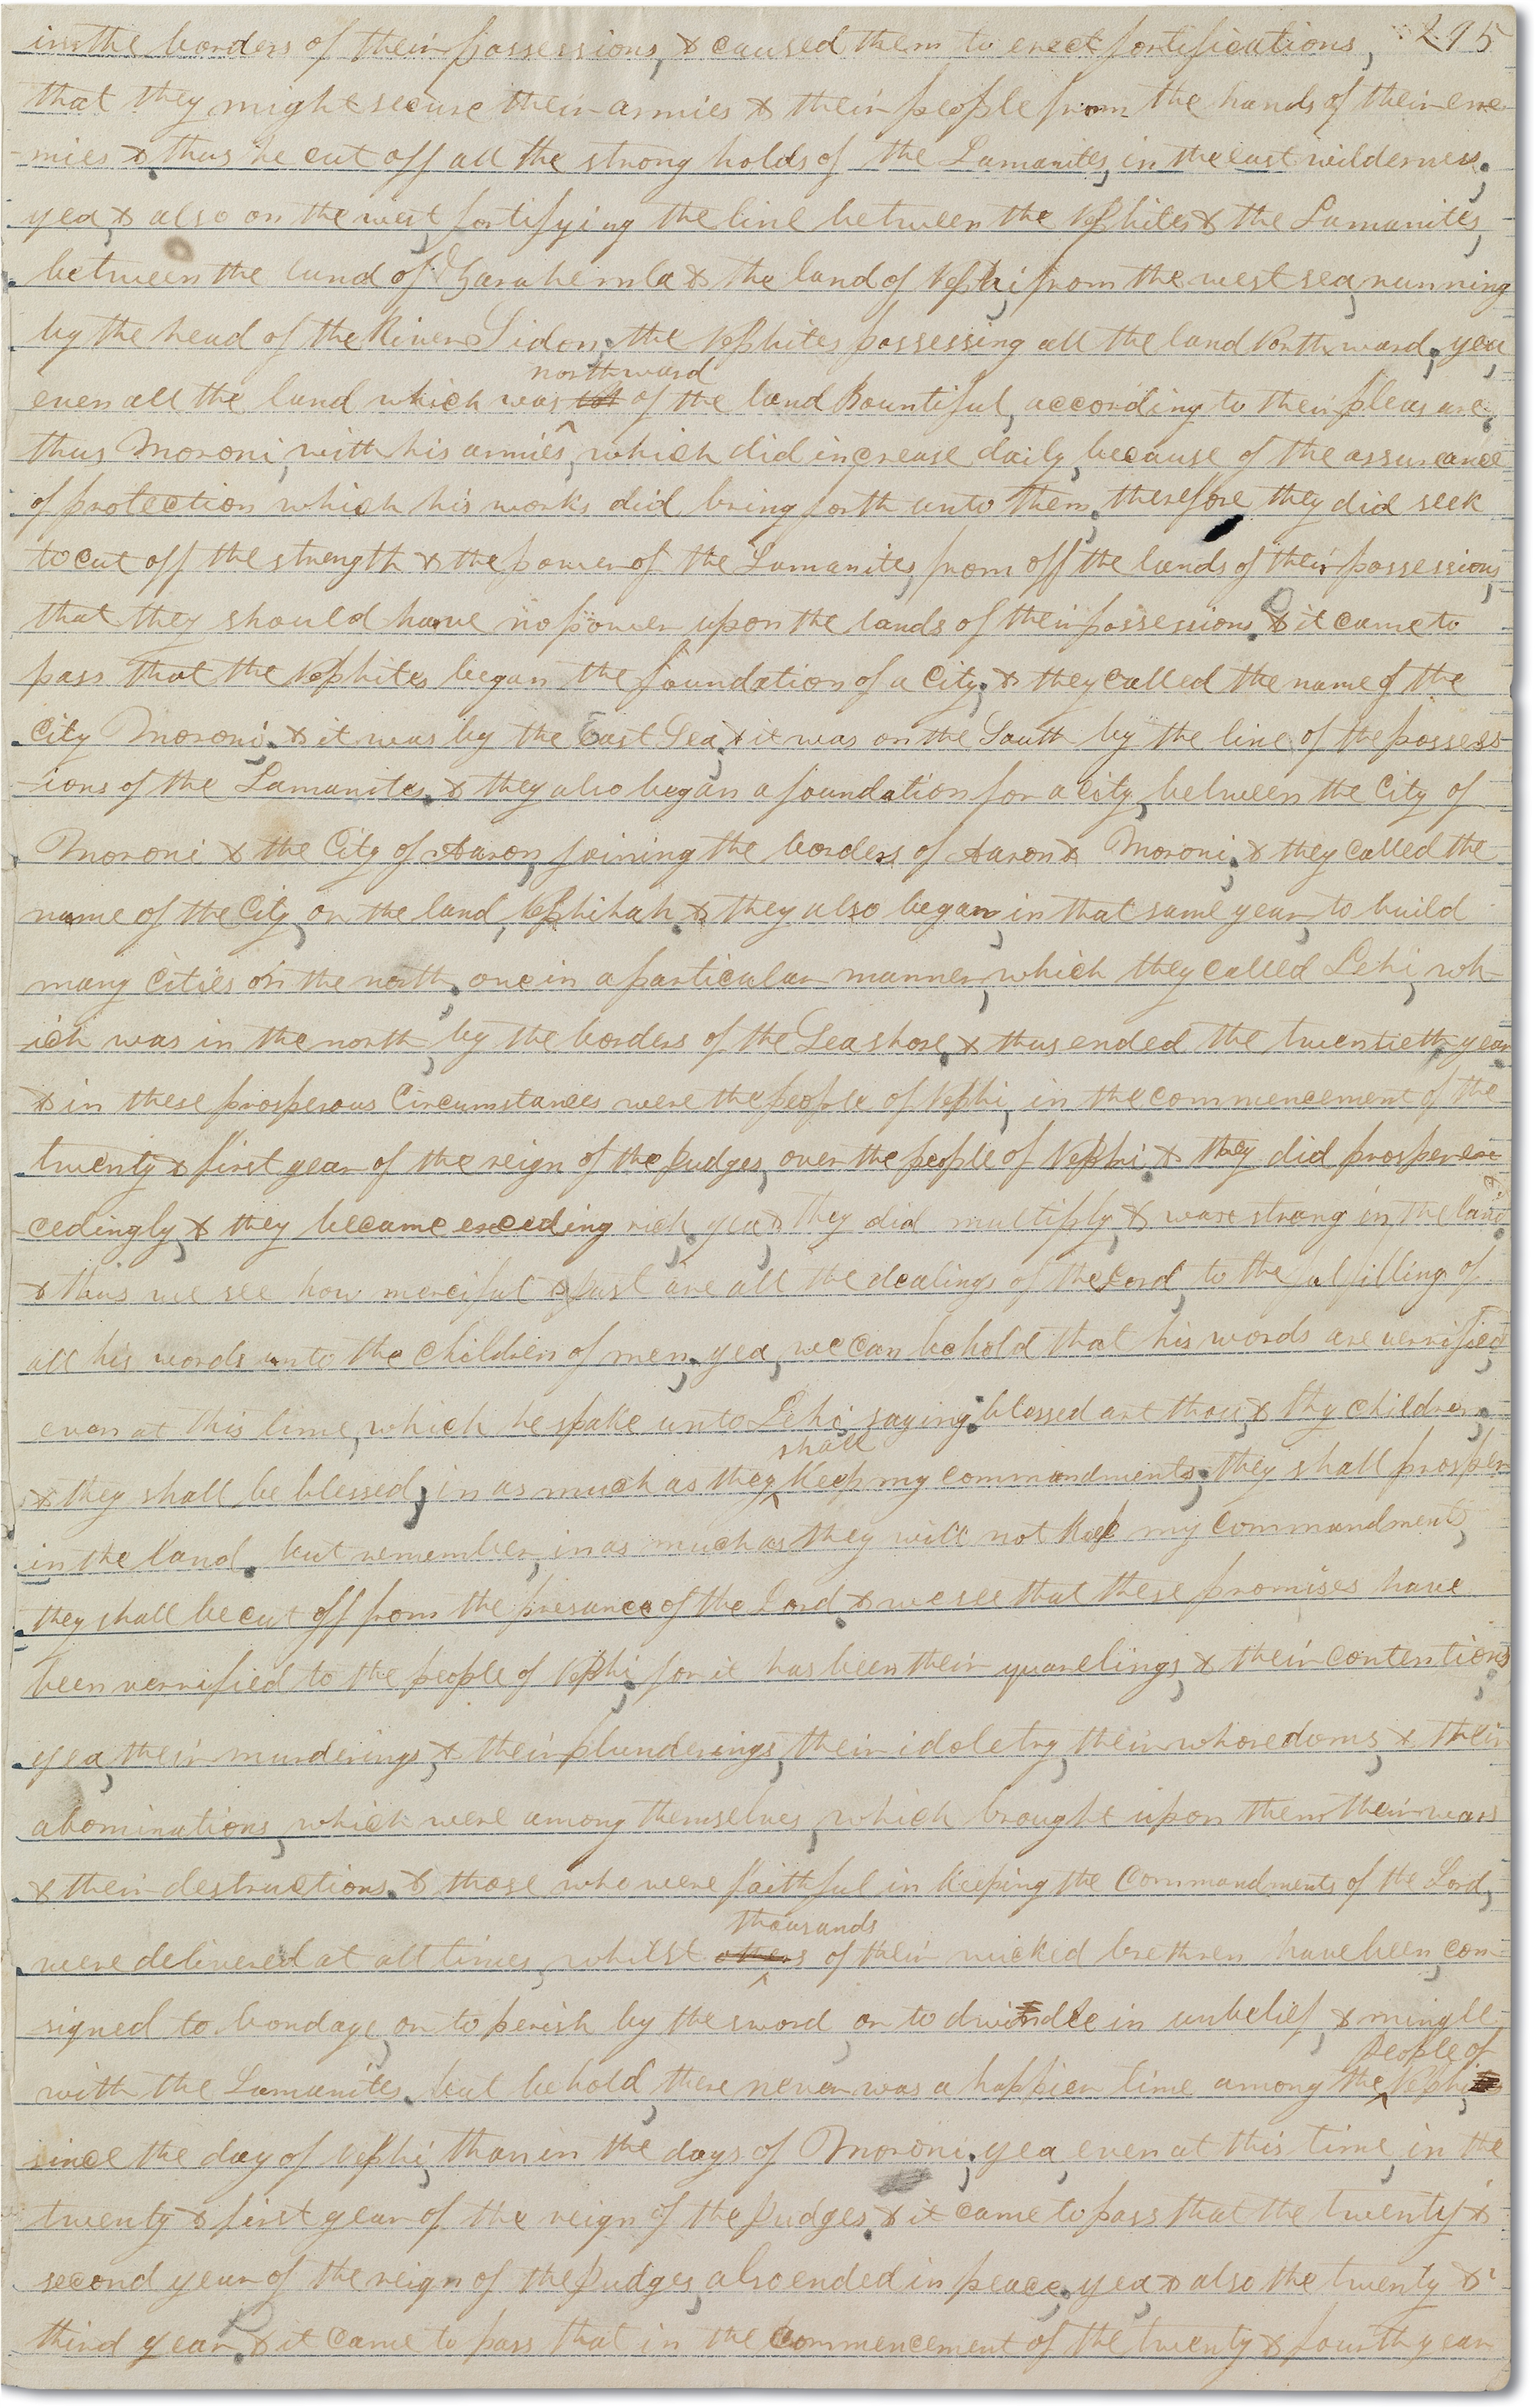 295
in the borders of their possessions, & caused them to erect fortifications,
that they might secure their armies & their people from the hands of their ene-
-mies & thus he cut off all the strong holds of the Lamanites, in the east wilderness.
yea, & also on the west, fortifying the line between the Nephites & the Lamanites,
between the land of Zarahemla & the land of Nephi, from the west sea, running
by the head of the River Sidon, the Nephites possessing all the land Northward, yea,
northward
even all the land which was of the land Bountiful, according to their pleasure.
thus Moroni, with his armies, which did increase daily, because of the assurance
of protection which his works did bring forth unto them, therefore they did seek
to cut off the strength & the power of the Lamanites, from off the lands of their possessions,
that they should have no power upon the lands of their possessions. & it came to
pass that the Nephites began the foundation of a City, & they called the name of the
City Moroni, & it was by the East Sea, & it was on the South by the line of the possess-
-ions of the Lamanites. & they also began a foundation for a city, between the City of
Moroni & the City of Aaron, joining the borders of Aaron & Moroni, & they called the
name of the City, or the land, Nephihah. & they also began, in that same year, to build
many Cities on the north, one in a particular manner, which they called Lehi, wh-
-ich was in the north, by the borders of the Sea shore. & thus ended the twentieth year
& in these prosperous Circumstances were the people of Nephi, in the commencement of the
twenty & first year of the reign of the Judges, over the people of Nephi. & they did prosper ex-
ceedingly, & they became exceeding rich, yea & they did multiply, & ware strong in the land.
& thus we see how merciful & Just are all the dealings of the Lord, to the fulfilling of
all his words unto the Children of men, yea, we can behold that his words are verrified
even at this time, which he spake unto Lehi, saying: blessed art thou, & thy children,
shall
& they shall be blessed, in as much as they Keep my commandments, they shall prosper
in the land. but remember, in as much as they will not Keep my Commandments,
they shall be cut off from the presance of the Lord. & we see that these promises have
been verrified to the people of Nephi, for it has been their quarelings, & their contentions,
yea, their murderings, & their plunderings, their idoletry, their whoredoms, & their
abominations, which were among themselves, which brought upon them their wars
& their destructions. & those who were faithful in Keeping the Commandments of the Lord,
thousands
were delivered at all times, whilst others of their wicked brethren have been, con-
signed to bondage, or to perish by the sword, or to dwindle in unbelief, & mingle
People of
with the Lamanites. but behold, there never was a happier time among the Nephi
since the day of Nephi, than in the days of Moroni, yea, even at this time, in the
twenty & first year of the reign of the Judges. & it came to pass that the twenty &
second year of the reign of the Judges, also ended in peace, yea & also the twenty &
third year. & it came to pass that in the commencement of the twenty & fourth year